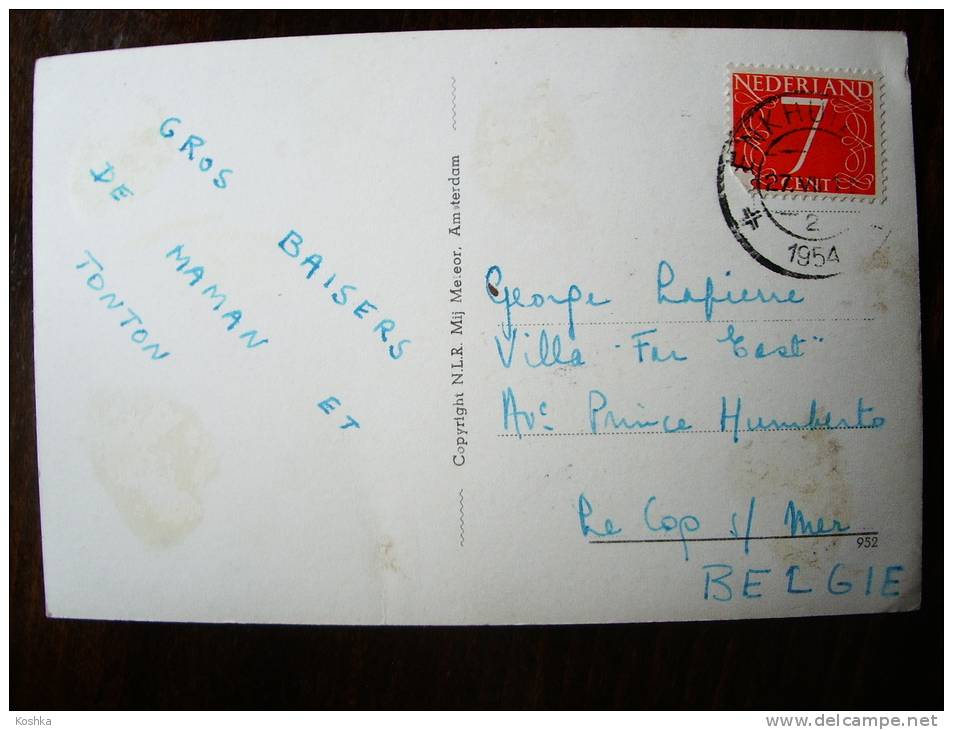 GROS BAISERS
DE MAMAN ET
TONTON
Copyright N.L.R. Mij Meteor, Amsterdam
NEDERLAND
7
CENT
27
2
1954
George Lapierre
Villa "Far East"
Avc Prince Humberto
Le Cop s/ Mer
952
BELGIE
Koshka
http://www.delcampe.net